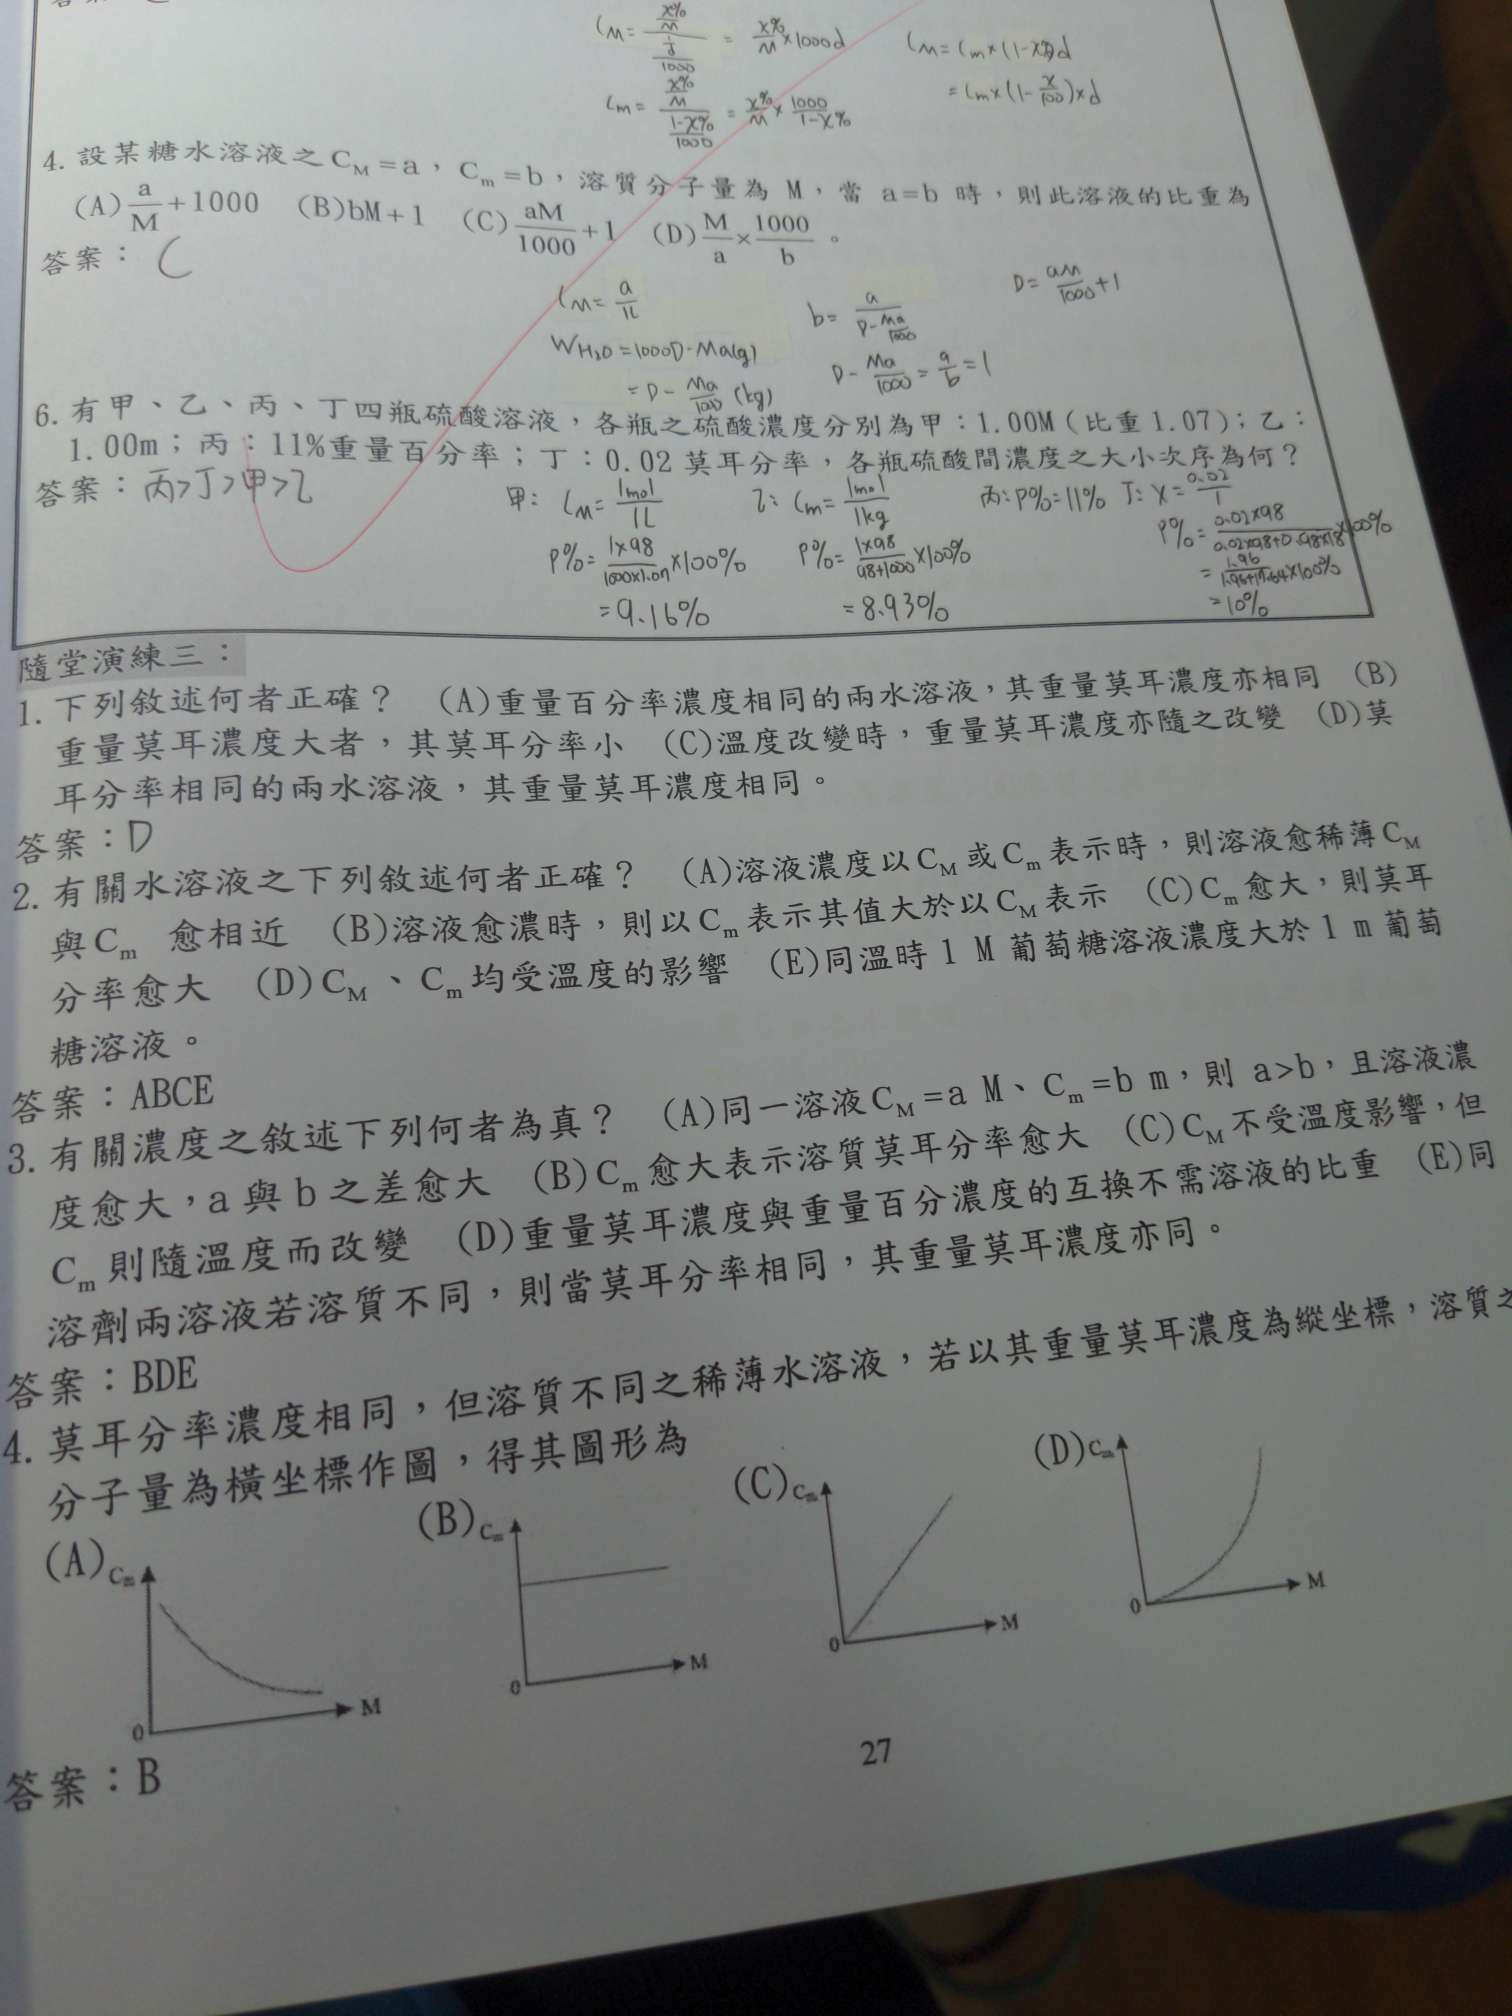 C_M = (x%/M)/((1/d)/1000) = x%/M × 1000d
C_M = C_m×(1-x%)d
= C_m×(1-x/100)×d
C_m = (x%/M)/((1-x%)/1000) = x%/M × 1000/(1-x%)
4. 設某糖水溶液之 C_M =a,C_m =b,溶質分子量為 M,當 a=b 時,則此溶液的比重為
(A) a/M +1000 (B)bM+1 (C) aM/1000 +1 (D) M/a × 1000/b 。
答案: C
C_M = a/1L
b = a/(D - Ma/1000)
D = aM/1000 +1
W_H₂O = 1000D - Ma(g)
= D - Ma/100 (kg)
D - Ma/1000 = a/b = 1
6. 有甲、乙、丙、丁四瓶硫酸溶液,各瓶之硫酸濃度分別為甲:1.00M(比重 1.07);乙:
1.00m;丙:11%重量百分率;丁:0.02 莫耳分率,各瓶硫酸間濃度之大小次序為何?
答案: 丙>丁>甲>乙
甲: C_M = 1mol/1L 乙: C_m = 1mol/1kg 丙: P%=11% 丁: X = 0.02/1
P% = 1×98/(1000×1.07) ×100% P% = 1×98/(98+1000) ×100% P% = 0.02×98/(0.02×98+0.98×18) ×100%
= 1.96/(1.96+17.64) ×100%
= 9.16% = 8.93% = 10%
隨堂演練三:
1. 下列敘述何者正確? (A)重量百分率濃度相同的兩水溶液,其重量莫耳濃度亦相同 (B)
重量莫耳濃度大者,其莫耳分率小 (C)溫度改變時,重量莫耳濃度亦隨之改變 (D)莫
耳分率相同的兩水溶液,其重量莫耳濃度相同。
答案:D
2. 有關水溶液之下列敘述何者正確? (A)溶液濃度以 C_M 或 C_m 表示時,則溶液愈稀薄 C_M
與 C_m 愈相近 (B)溶液愈濃時,則以 C_m 表示其值大於以 C_M 表示 (C) C_m 愈大,則莫耳
分率愈大 (D) C_M 、 C_m 均受溫度的影響 (E)同溫時 1 M 葡萄糖溶液濃度大於 1 m 葡萄
糖溶液。
答案:ABCE
3. 有關濃度之敘述下列何者為真? (A)同一溶液 C_M =a M、 C_m =b m,則 a>b,且溶液濃
度愈大,a 與 b 之差愈大 (B) C_m 愈大表示溶質莫耳分率愈大 (C) C_M 不受溫度影響,但
C_m 則隨溫度而改變 (D)重量莫耳濃度與重量百分濃度的互換不需溶液的比重 (E)同
溶劑兩溶液若溶質不同,則當莫耳分率相同,其重量莫耳濃度亦同。
答案:BDE
4. 莫耳分率濃度相同,但溶質不同之稀薄水溶液,若以其重量莫耳濃度為縱坐標,溶質之
分子量為橫坐標作圖,得其圖形為
(A) C_m 0 M
(B) C_m 0 M
(C) C_m 0 M
(D) C_m 0 M
答案:B
27